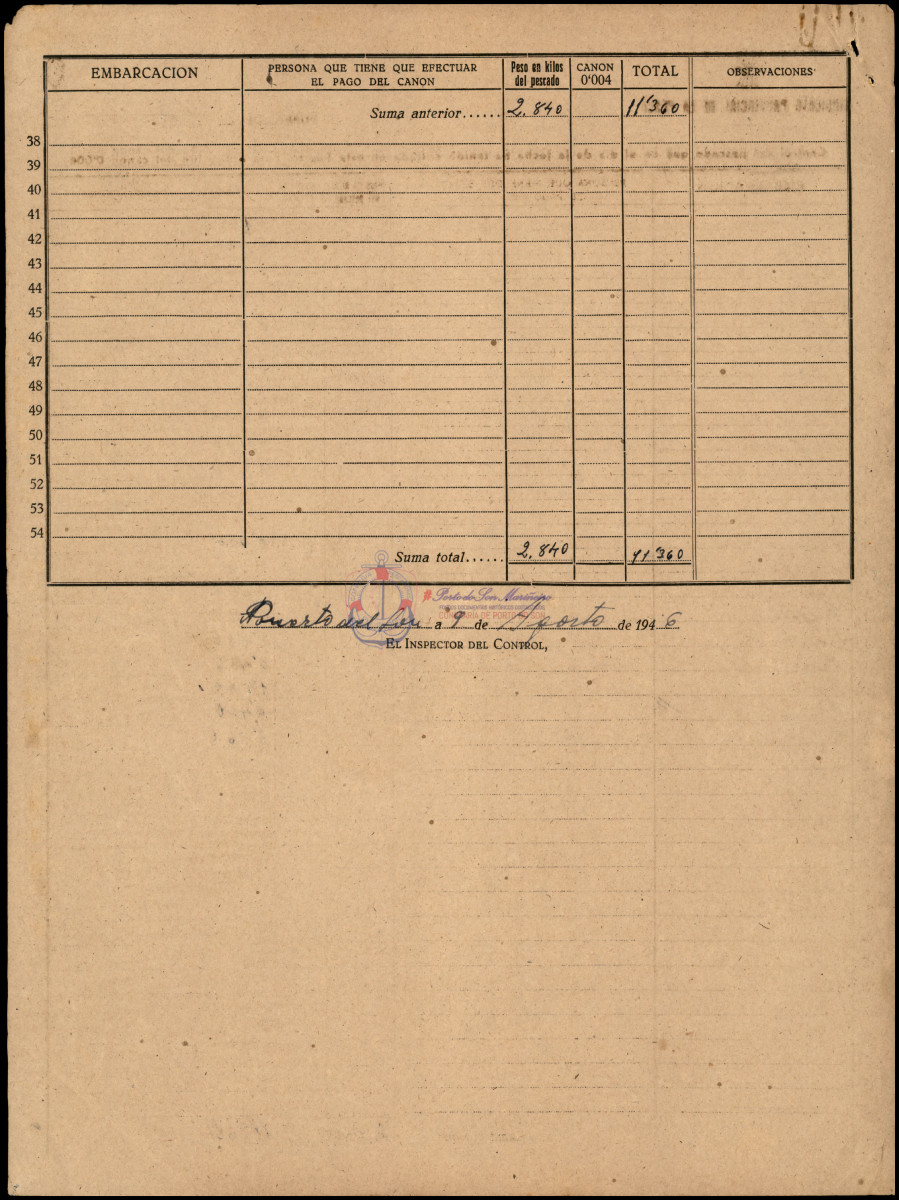 EMBARCACION PERSONA QUE TIENE QUE EFECTUAR EL PAGO DEL CANON Peso en kilos del pescado CANON 0'004 TOTAL OBSERVACIONES
Suma anterior...... 2.840 11'360
38
39
40
41
42
43
44
45
46
47
48
49
50
51
52
53
54
Suma total...... 2.840 11'360
Porto do Son Mariñeiro
Puerto del Son a 9 de Agosto de 1946
EL INSPECTOR DEL CONTROL,